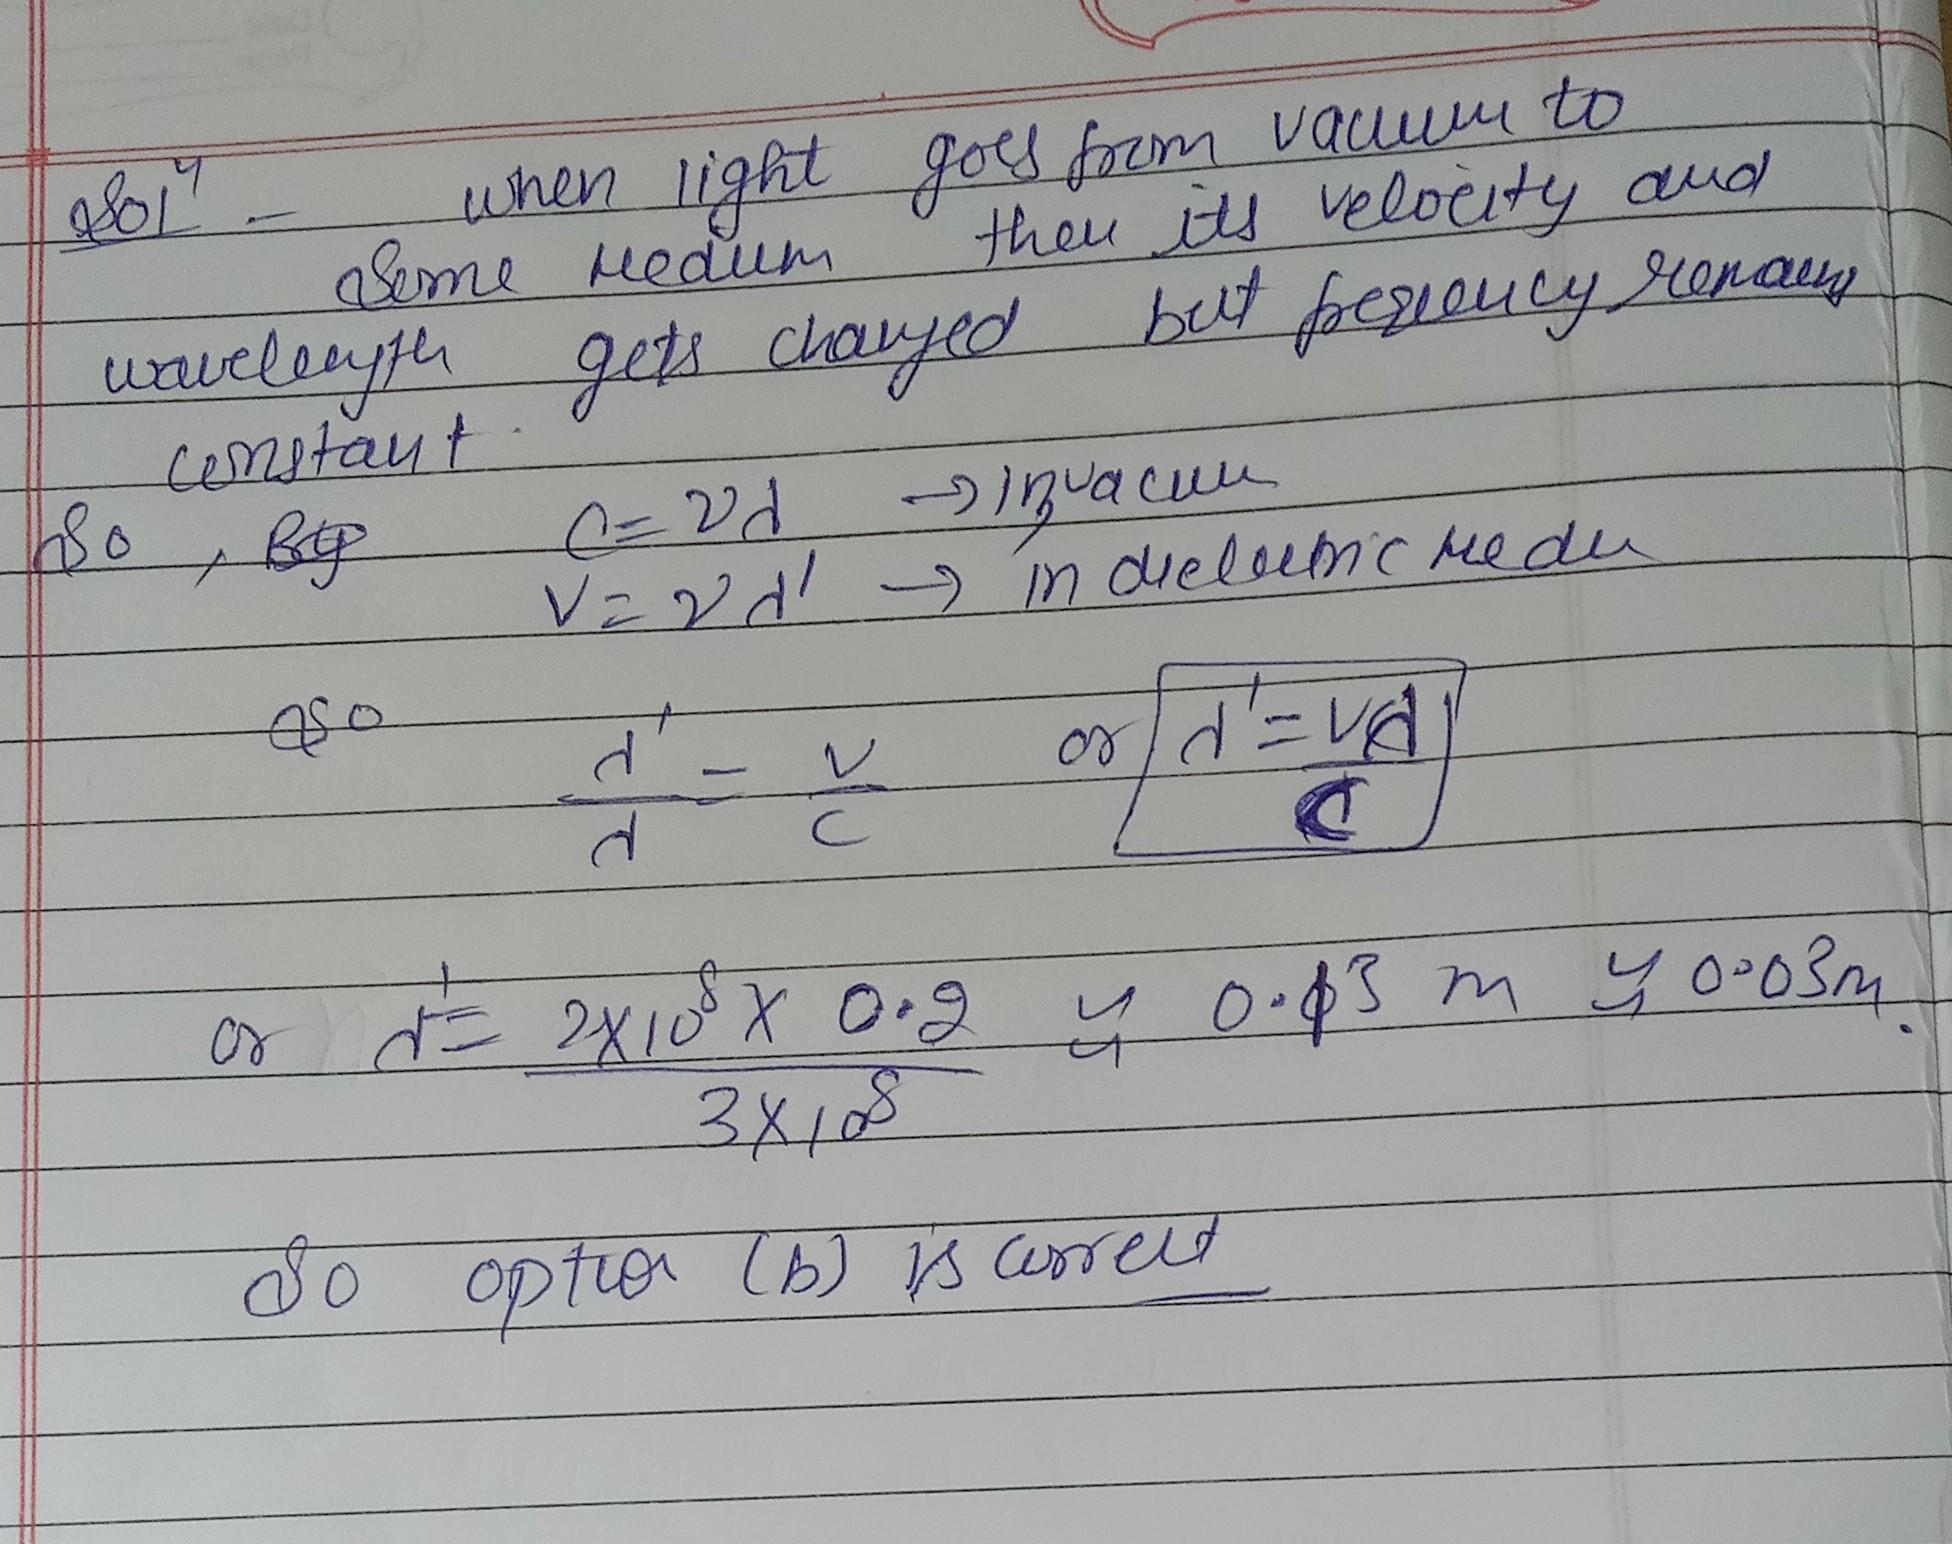 Solⁿ - when light goes from vacuum to
some medium then its velocity and
wavelength gets changed but frequency remains
constant.
So, By c = νλ → in vacuum
v = νλ' → in dielectric mediu
So λ'/λ = v/c or λ' = vλ/c
or λ' = 2×10⁸ × 0.2 / 3×10⁸ ≃ 0.13 m ≃ 0.03m.
So option (b) is correct